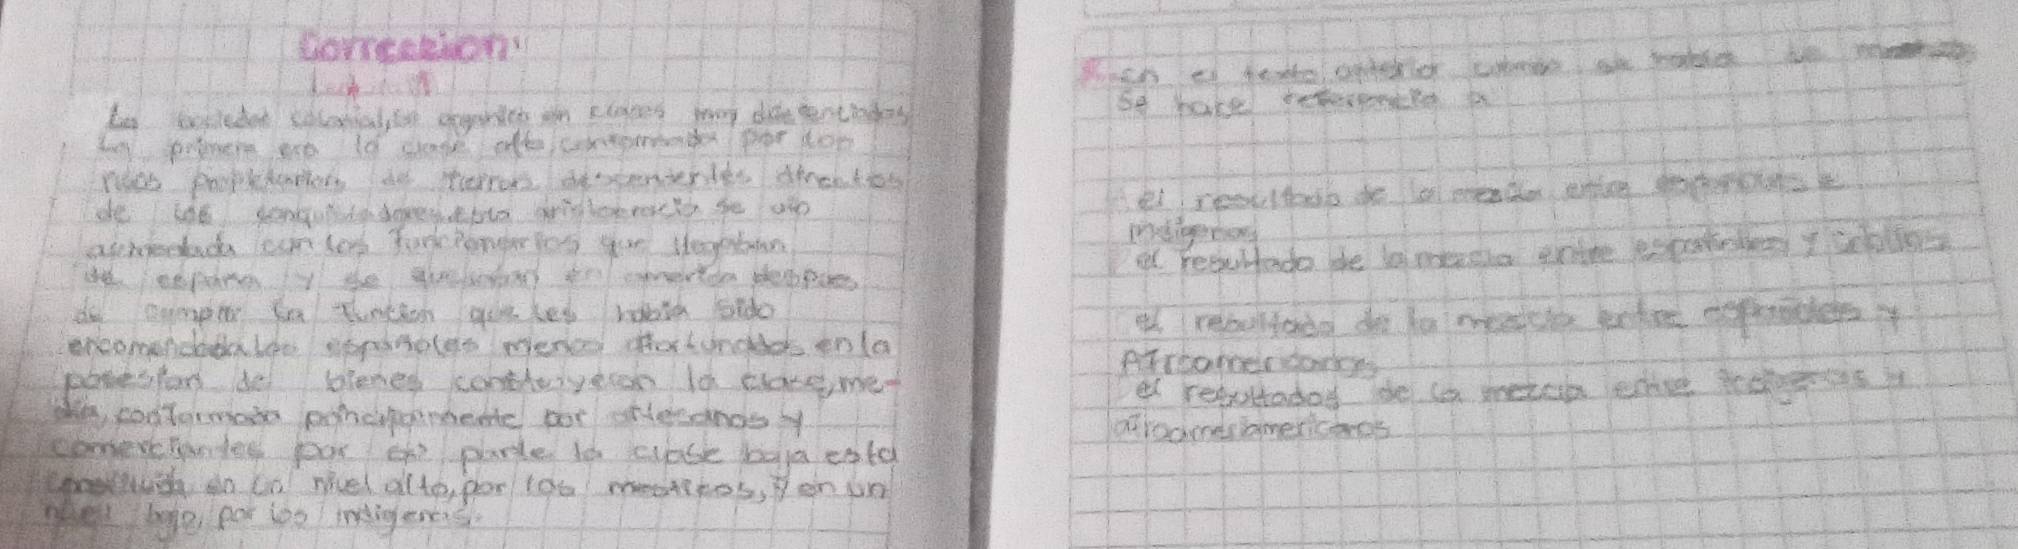 Correccion
La sociedad colonial, se organizo en clases muy diferenciadas
La primera era la clase alta, conformada por los
ricos propietarios de tierras descendientes directos
de los conquistadores, esta aristocracia se vio
aumentada con los funcionarios que llegaban
de españa y se quedaban en america despues
de cumplir la funcion que les habia sido
encomendada los españoles menos afortunados en la
posesion de bienes constituyeron la clase, me-
dia, conformada principalmente por artesanos y
comerciantes por su parte la clase baja esta
constituida en un nivel alto, por los mestizos, y en un
nivel bajo, por los indigenas.
en el texto anterior cuando se habla de
se hace referencia a
el resultado de la mezcla entre españoles e
indigenas
el resultado de la mezcla entre españoles y criollos
el resultado de la mezcla entre españoles y
el resultados de la mezcla entre indigenas y